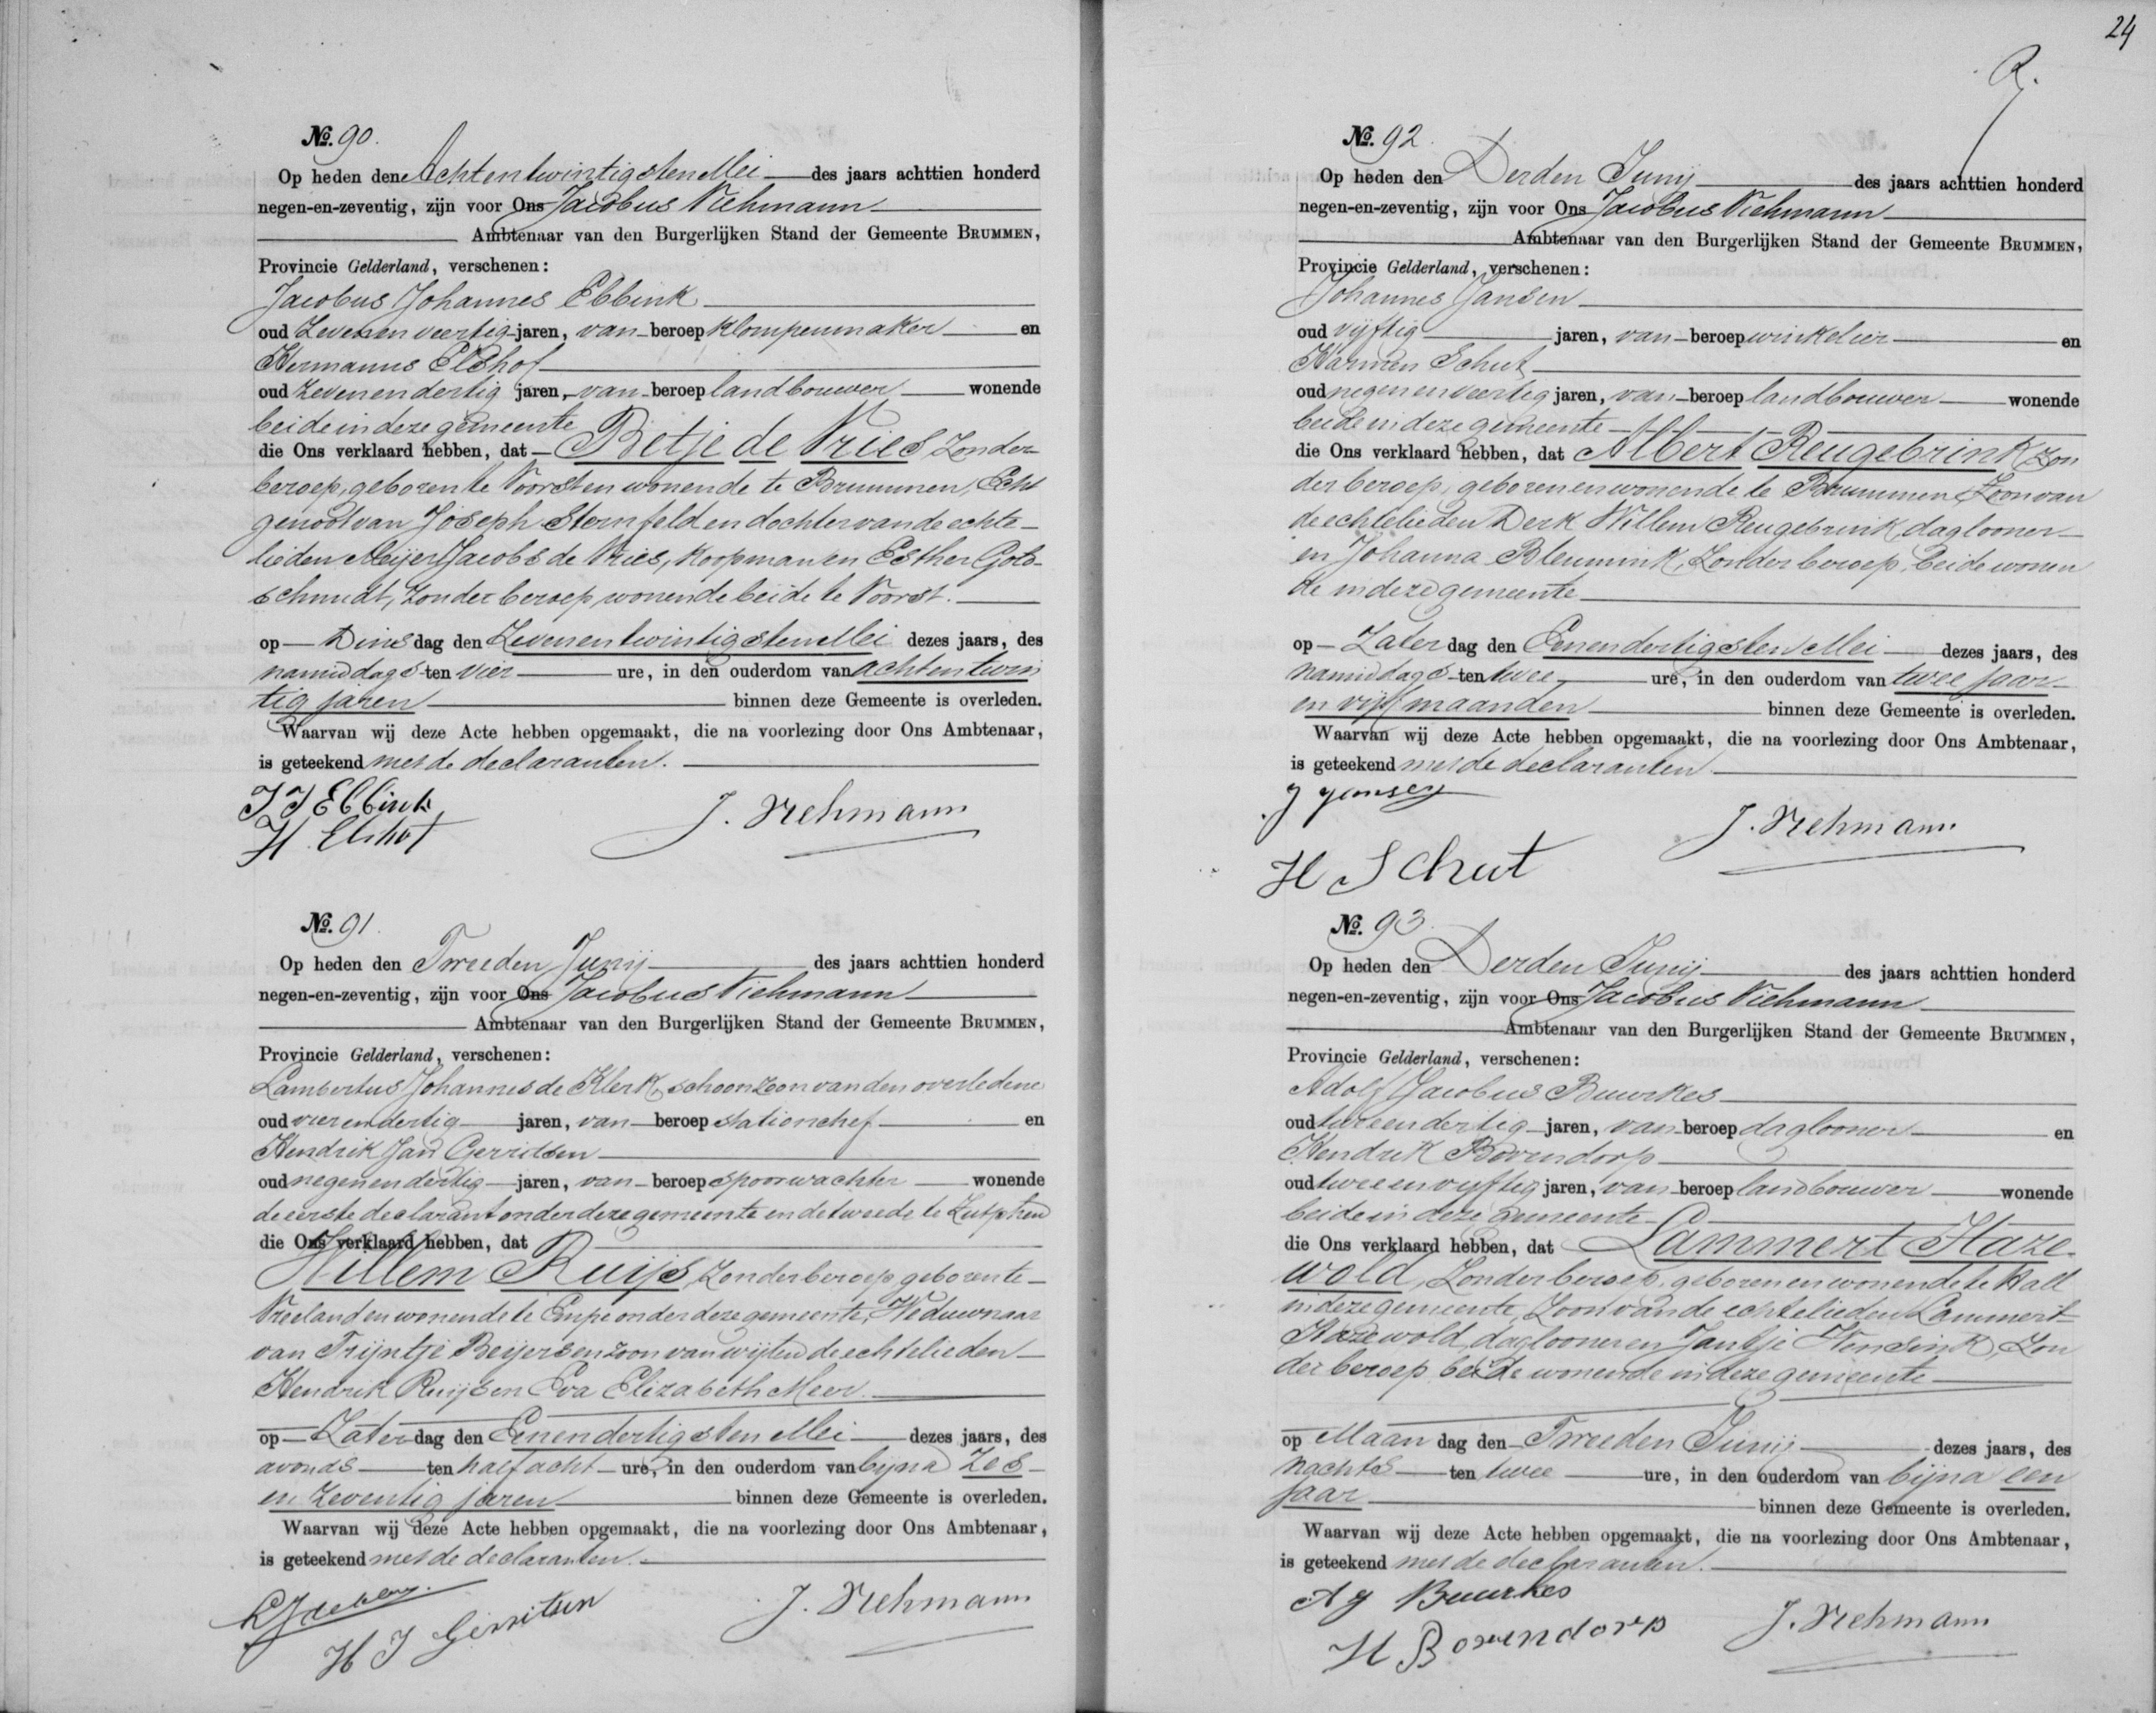 No. 90.
Op heden den Achtentwintigsten Mei des jaars achttien honderd
negen-en-zeventig, zijn voor Ons Jacobus Viehmann
Ambtenaar van den Burgerlijken Stand der Gemeente BRUMMEN,
Provincie Gelderland, verschenen:
Jacobus Johannes Ebbink
oud Zevenenveertig jaren, van beroep klompenmaker en
Hermanus Elshof
oud Zevenendertig jaren, van beroep landbouwer wonende
beide in deze gemeente
die Ons verklaard hebben, dat Betje de Vries Zonder
beroep, geboren te Voorst en wonende te Brummen, Echt
genoot van Joseph Sternfeld en dochter van de echte-
lieden Meijer Jacobs de Vries, Koopman en Esther Gold-
schmidt, zonder beroep wonende beide te Voorst.
op Dinsdag den Zevenentwintigsten Mei dezes jaars, des
namiddags ten vier ure, in den ouderdom van achtentwin
tig jaren binnen deze Gemeente is overleden.
Waarvan wij deze Acte hebben opgemaakt, die na voorlezing door Ons Ambtenaar,
is geteekend met de declaranten.
J J Ebbink
H. Elshof
J. Viehmann
No. 91.
Op heden den Tweeden Junij des jaars achttien honderd
negen-en-zeventig, zijn voor Ons Jacobus Viehmann
Ambtenaar van den Burgerlijken Stand der Gemeente BRUMMEN,
Provincie Gelderland, verschenen:
Lambertus Johannes de Klerk, schoonzoon van den overledene
oud vierendertig jaren, van beroep stationchef en
Hendrik Jan Gerritsen
oud negenendertig jaren, van beroep spoorwachter wonende
de eerste declarant onder deze gemeente en de tweede te Zutphen
die Ons verklaard hebben, dat
Willem Ruijs, Zonder beroep, geboren te
Vreeland en wonende te Empe onder deze gemeente, Weduwnaar
van Trijntje Beijersen zoon van wijlen de echtelieden
Hendrik Ruijs en Eva Elizabeth Meer.
op Zaterdag den Eenendertigsten Mei dezes jaars, des
avonds ten half acht ure, in den ouderdom van bijna Zes-
en Zeventig jaren binnen deze Gemeente is overleden.
Waarvan wij deze Acte hebben opgemaakt, die na voorlezing door Ons Ambtenaar,
is geteekend met de declaranten.
H J Gerritsen
J. Viehmann
24
No. 92.
Op heden den Derden Junij des jaars achttien honderd
negen-en-zeventig, zijn voor Ons Jacobus Viehmann
Ambtenaar van den Burgerlijken Stand der Gemeente BRUMMEN,
Provincie Gelderland, verschenen:
Johannes Jansen
oud vijftig jaren, van beroep winkelier en
Harmen Schut
oud negenenveertig jaren, van beroep landbouwer wonende
beide in deze gemeente
die Ons verklaard hebben, dat Albert Reugebrink Zon
der beroep, geboren en wonende te Brummen, Zoon van
de echtelieden Derk Willem Reugebrink, daglooner
en Johanna Bleumink, Zonder beroep, beide wonen
de in deze gemeente
op Zaterdag den Eenendertigsten Mei dezes jaars, des
namiddags ten twee ure, in den ouderdom van twee jaar
en vijf maanden binnen deze Gemeente is overleden.
Waarvan wij deze Acte hebben opgemaakt, die na voorlezing door Ons Ambtenaar,
is geteekend met de declaranten.
J Jansen
H Schut
J. Viehmann
No. 93.
Op heden den Derden Junij des jaars achttien honderd
negen-en-zeventig, zijn voor Ons Jacobus Viehmann
Ambtenaar van den Burgerlijken Stand der Gemeente BRUMMEN,
Provincie Gelderland, verschenen:
Adolf Jacobus Buurkes
oud tweeendertig jaren, van beroep daglooner en
Hendrik Bovendorp
oud tweeenvijftig jaren, van beroep landbouwer wonende
beide in deze gemeente
die Ons verklaard hebben, dat Lammert Haze-
wold, Zonder beroep, geboren en wonende te Hall
in deze gemeente, Zoon van de echtelieden Lammert
Hazewold, daglooner en Jantje Wensink, Zon
der beroep, beide wonende in deze gemeente
op Maandag den Tweeden Junij dezes jaars, des
nachts ten twee ure, in den ouderdom van bijna een
jaar binnen deze Gemeente is overleden.
Waarvan wij deze Acte hebben opgemaakt, die na voorlezing door Ons Ambtenaar,
is geteekend met de declaranten.
A J Buurkes
H Bovendorp
J. Viehmann